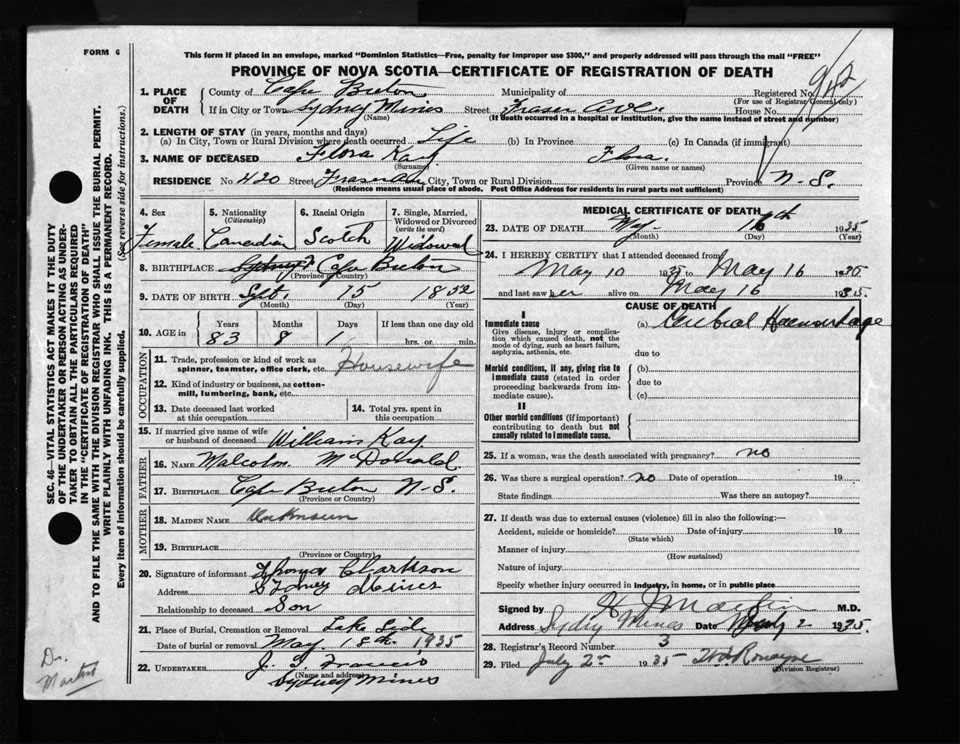 FORM 6
This form if placed in an envelope, marked "Dominion Statistics—Free, penalty for improper use $300," and properly addressed will pass through the mail "FREE"
PROVINCE OF NOVA SCOTIA—CERTIFICATE OF REGISTRATION OF DEATH
942
SEC. 46—VITAL STATISTICS ACT MAKES IT THE DUTY
OF THE UNDERTAKER OR PERSON ACTING AS UNDER-
TAKER TO OBTAIN ALL THE PARTICULARS REQUIRED
IN THE "CERTIFICATE OF REGISTRATION OF DEATH"
AND TO FILE THE SAME WITH THE DIVISION REGISTRAR WHO SHALL ISSUE THE BURIAL PERMIT.
WRITE PLAINLY WITH UNFADING INK. THIS IS A PERMANENT RECORD.
Every item of information should be carefully supplied. (See reverse side for instructions.)
1. PLACE OF DEATH
County of Cape Breton Municipality of Registered No.
(For use of Registrar General only)
If in City or Town Sydney Mines Street Fraser Ave. House No.
(Name) (If death occurred in a hospital or institution, give the name instead of street and number)
2. LENGTH OF STAY (in years, months and days)
(a) In City, Town or Rural Division where death occurred Life (b) In Province (c) In Canada (if immigrant)
3. NAME OF DECEASED Flora Kay Flora.
(Surname) (Given name or names)
RESIDENCE No. 420 Street Fraser Av. City, Town or Rural Division Province N-S.
(Residence means usual place of abode. Post Office Address for residents in rural parts not sufficient)
4. Sex 5. Nationality 6. Racial Origin 7. Single, Married,
(Citizenship) Widowed or Divorced
(write the word)
Female Canadian Scotch Widowed
8. BIRTHPLACE Sydney Cape Breton
(Province or Country)
9. DATE OF BIRTH Sept. 15 1852
(Month) (Day) (Year)
10. AGE in Years Months Days If less than one day old
83 8 1 hrs. or min.
OCCUPATION
11. Trade, profession or kind of work as
spinner, teamster, office clerk, etc. Housewife
12. Kind of industry or business, as cotton-
mill, lumbering, bank, etc.
13. Date deceased last worked
at this occupation
14. Total yrs. spent in
this occupation
15. If married give name of wife
or husband of deceased William Kay
FATHER
16. NAME Malcolm McDonald.
17. BIRTHPLACE Cape Breton N-S.
(Province or Country)
MOTHER
18. MAIDEN NAME Unknown
19. BIRTHPLACE
(Province or Country)
20. Signature of informant Thomas Clarkson
Address Sydney Mines
Relationship to deceased Son
21. Place of Burial, Cremation or Removal Lake Side
Date of burial or removal May. 18th. 1935
22. UNDERTAKER J. Francis
(Name and address)
Sydney Mines
Dr.
MEDICAL CERTIFICATE OF DEATH
23. DATE OF DEATH My. 16th 1935
(Month) (Day) (Year)
24. I HEREBY CERTIFY that I attended deceased from
May 10 1935 to May 16 1935
and last saw her alive on May 16 1935.
CAUSE OF DEATH
I
Immediate cause
Give disease, injury or complica-
tion which caused death, not the
mode of dying, such as heart failure,
asphyxia, asthenia, etc.
(a) Cerebral Haemorrhage
due to
Morbid conditions, if any, giving rise to
immediate cause (stated in order
proceeding backwards from im-
mediate cause).
(b)
due to
(c)
II
Other morbid conditions (if important)
contributing to death but not
causally related to immediate cause.
25. If a woman, was the death associated with pregnancy? no
26. Was there a surgical operation? no Date of operation 19
State findings Was there an autopsy?
27. If death was due to external causes (violence) fill in also the following:—
Accident, suicide or homicide? Date of injury 19
(State which)
Manner of injury
(How sustained)
Nature of injury
Specify whether injury occurred in industry, in home, or in public place
Signed by M.D.
Address Sydney Mines Date 2 1935.
28. Registrar's Record Number 3
29. Filed July 2nd 1935
(Division Registrar)